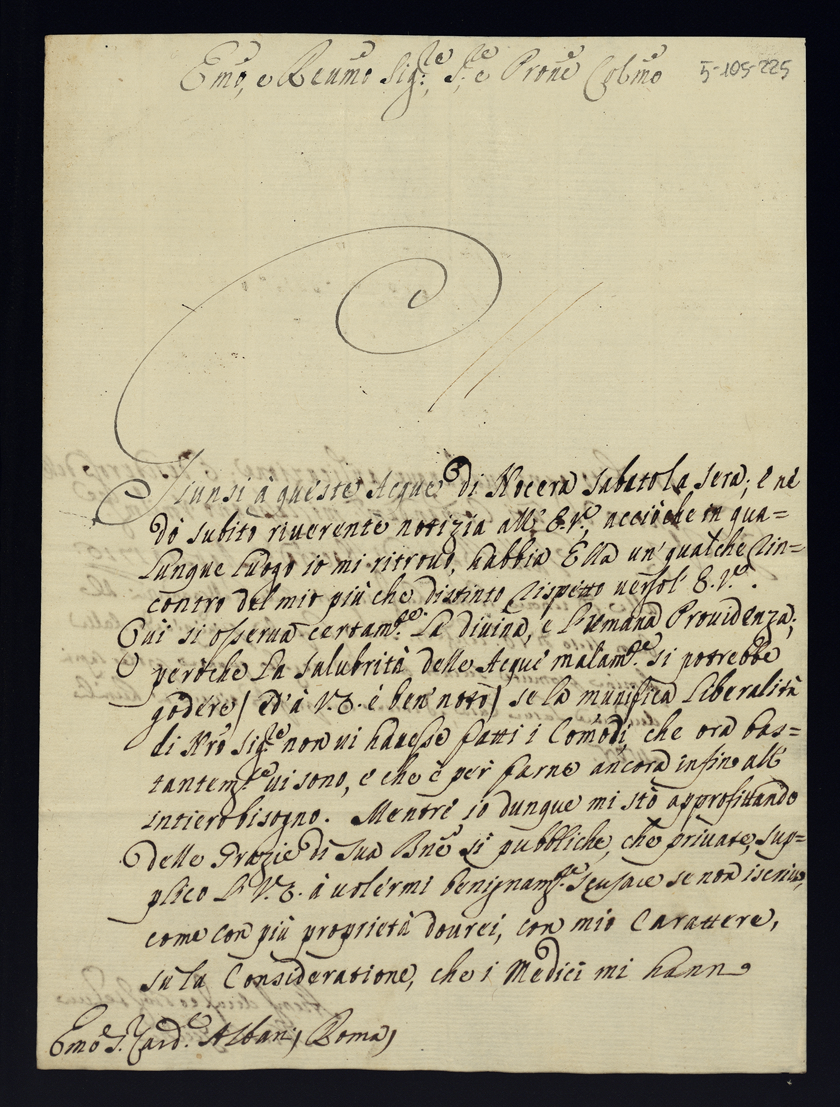 Emo, e Reumo Sig.re S.re e Prone Colmo
5-105-225
Giunsi à queste Acque di Nocera Sabato la sera; e ne
dò subito riuerente notizia all' E.V., acciòche in qua=
lunque luogo io mi ritroui, habbia Ella un' qualche Rin=
contro del mio più che distinto Rispetto verso l' E.V.
Quì si osserua certam.te La diuina, e L'umana Prouidenza;
peroche La Salubrità delle Acque malam.te si potrebbe
godere/ ed' à V.E. è ben' noto/ se la munifica Liberalità
di Nro Sig.re non ui hauesse fatti i Comodi, che ora bas=
tantem.te ui sono, e che è per farne ancora infin' all'
intiero bisogno. Mentre io dunque mi stò approfittando
delle Grazie di Sua Bne sì pubbliche, che priuate, sup=
plico L'V.E. à uolermi benignam.te scusare se non iscriuo,
come con più proprietà dourei, con mio Carattere,
su la Consideratione, che i Medici mi hanno
Emo S. Card. Albani Roma)